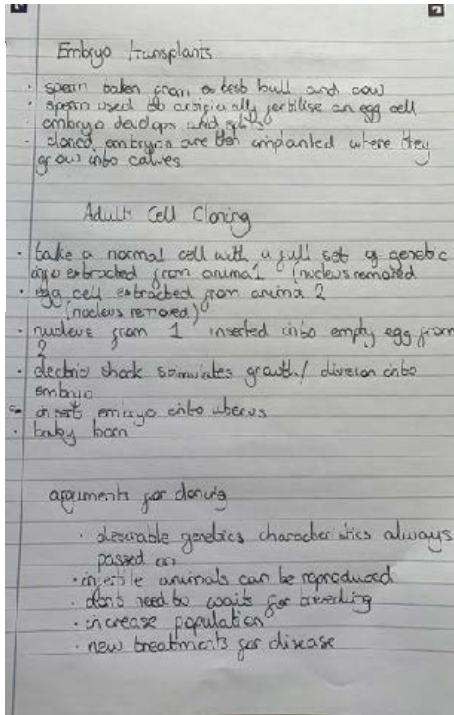 Embryo transplants
· sperm taken from a best bull and cow
· sperm used to artificially fertilise an egg cell
· embryo develops and splits
· cloned embryos are then implanted where they
grow into calves
Adult Cell Cloning
· take a normal cell with a full set of genetic
info extracted from animal 1 (nucleus removed
· egg cell extracted from animal 2
(nucleus removed)
· nucleus from 1 inserted into empty egg from
2
· electric shock stimulates growth/ division into
embryo
· insert embryo into uterus
· baby born
arguments for cloning
· desirable genetics characteristics always
passed on
· infertile animals can be reproduced
· don't need to wait for breeding
· increase population
· new treatments for disease